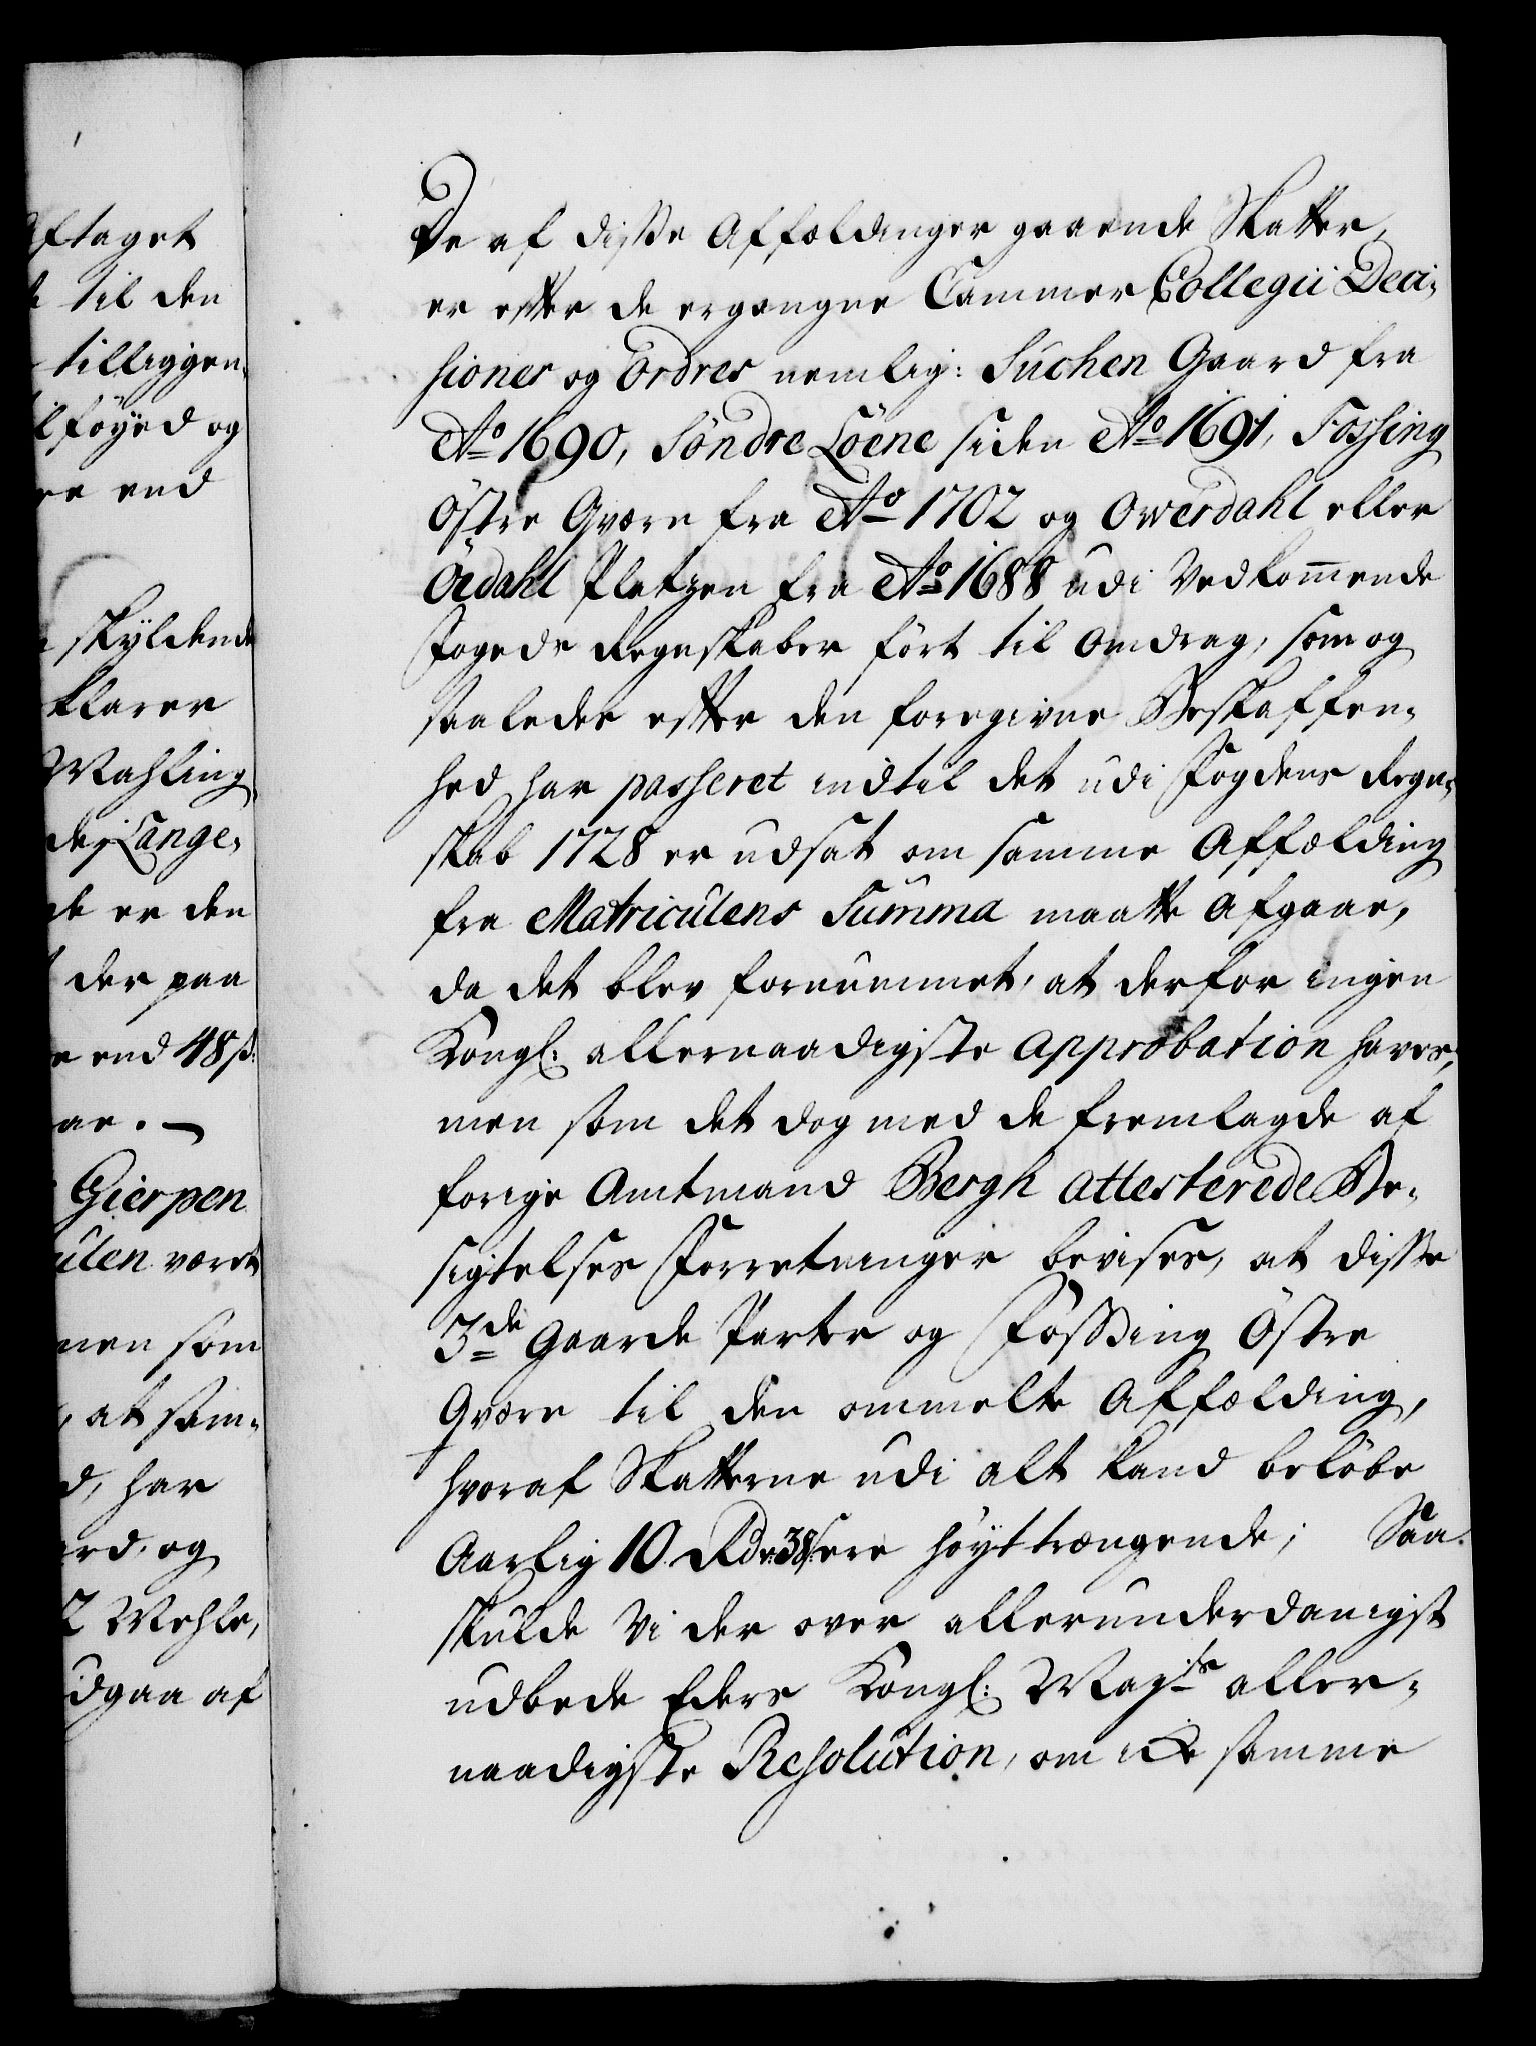 ftaget
til den
tilliggen-
lföyed og
re end
skyldende
klarer
Mæhling
des Lange-
de er den
der paa
e end 48 s:
ar. —
Gierpen
ulen værdt
men som
, at sam-
d, har
ærd, og
2 Mehle,
udgaa af
De af disse Affældinger gaaende Skatter,
er efter de ergangne Cammer Collegii Deci-
sioner og Ordres nemlig: Suchen Gaard fra
Ao 1690, Söndre Löene siden Ao 1691, Fossing
Östre Qværn fra Ao 1702 og Owerdahl eller
Öedahl Pladtzen fra Ao 1688 udi Vedkommende
Fogeds Regnskaber fört til Omdrag, som og
saaledes efter den foregivne Beskaffen-
hed har passeret indtil det udi Fogdens Regn-
skab 1728 er udsat om samme Affælding
fra Matriculens Summa maatte Afgaae,
da det blev fornummet, at derfor ingen
Kongl: allernaadigste Approbation haves,
men som det dog med de fremlagde af
forige Amtmand Bergh attesterede Be-
sigtelses Forretninger bevises, at disse
3de Gaarde Parter og Fossing Östre
Qværn til den ommelte Affælding,
hvoraf Skatterne udi alt kand belöbe
Aarlig 10 Rdr 38 s ere höyttrængende; Saa
skulde Vi der over allerunderdanigst
udbede Eders Kongl: Mayts aller-
naadigste Resolution, om icke samme